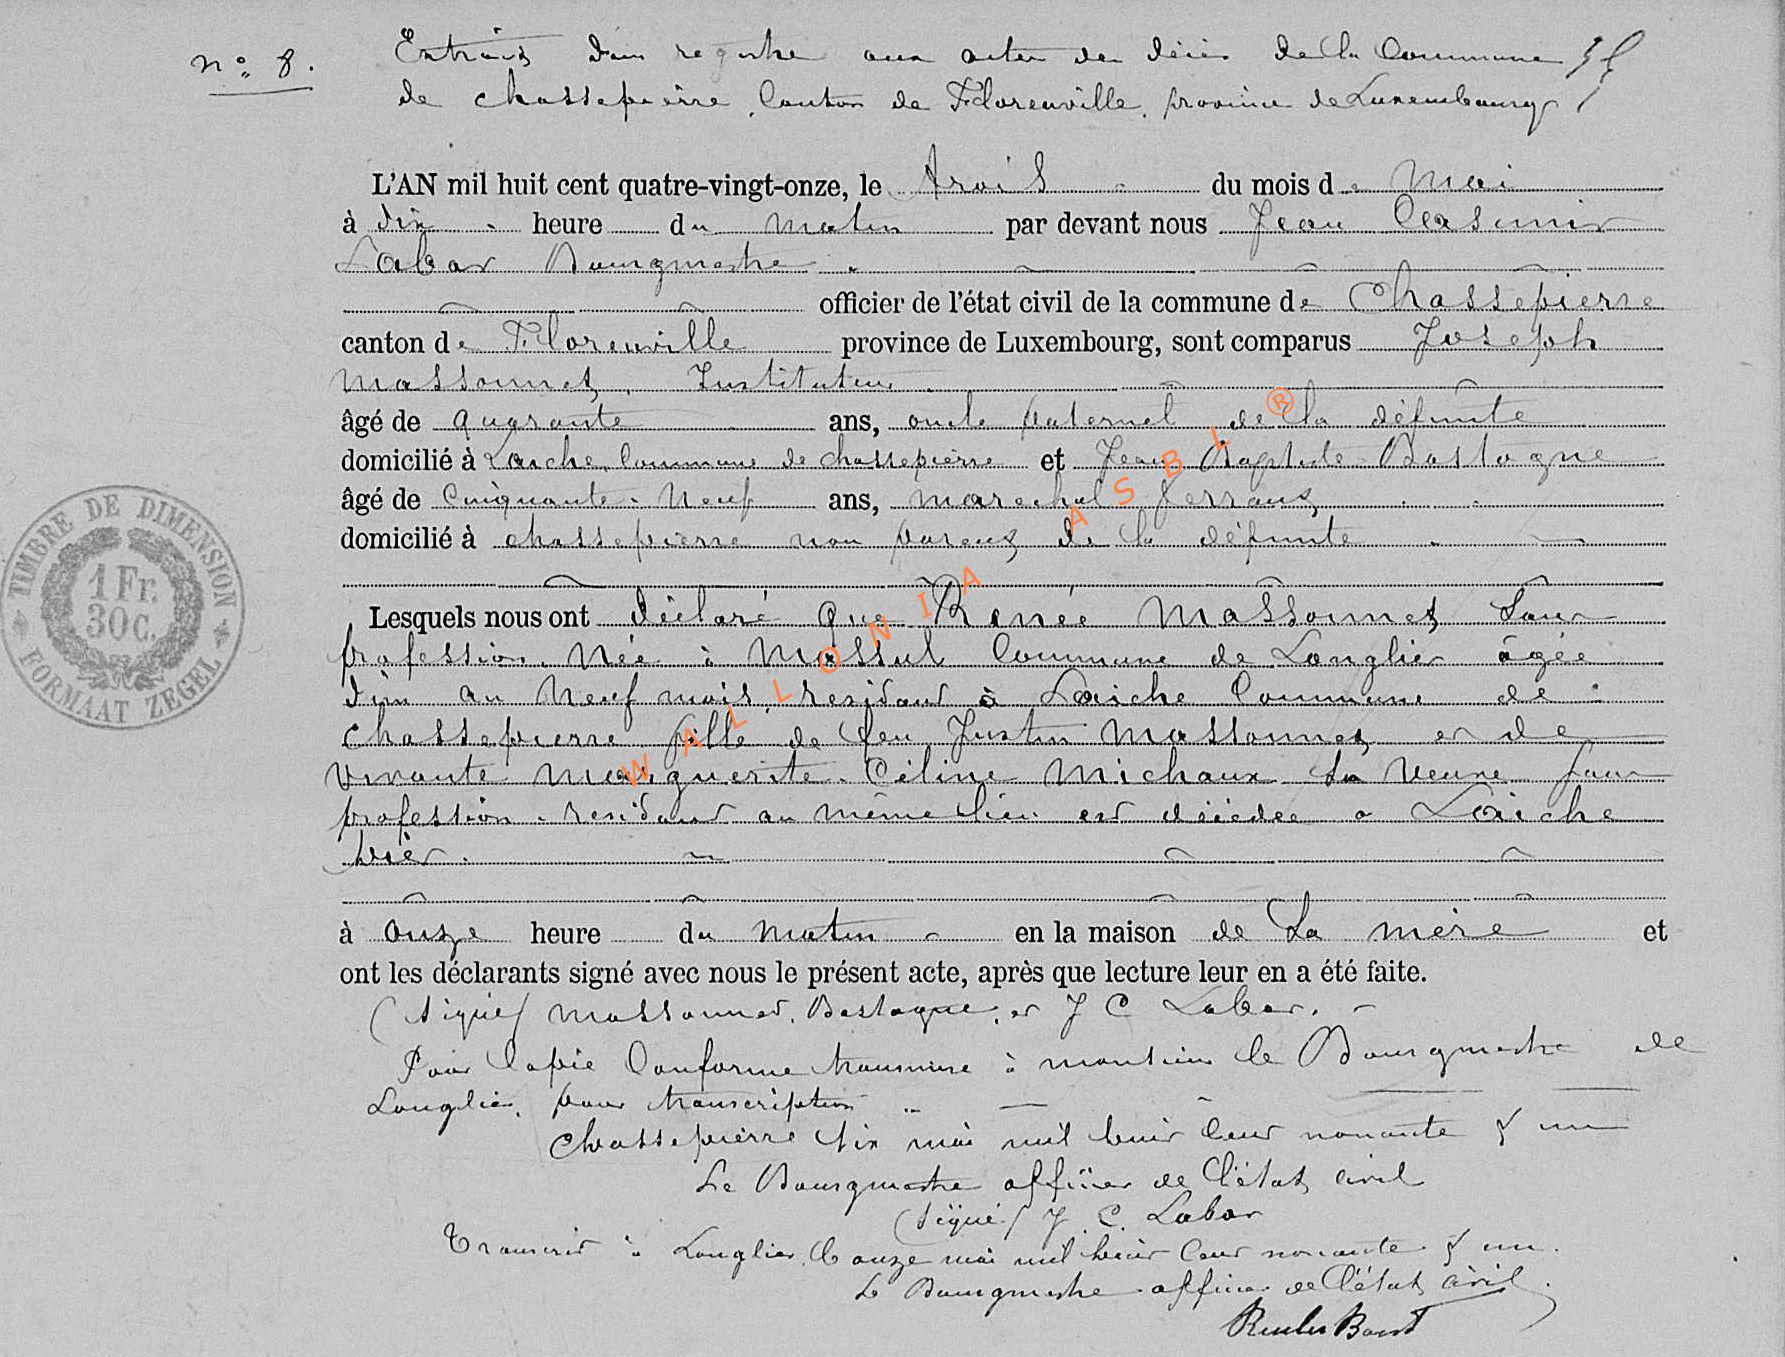 n° 8.
Extrait d'un registre aux actes de décès de la Commune
de Chassepierre, Canton de Florenville, province de Luxembourg
L'AN mil huit cent quatre-vingt-onze, le trois du mois de Mai
à dix heure du matin par devant nous Jean Casimir
Labar Bourgmestre
officier de l'état civil de la commune de Chassepierre
canton de Florenville province de Luxembourg, sont comparus Joseph
Massonnet, Instituteur
âgé de quarante ans, oncle paternel de la défunte
domicilié à Laiche, Commune de chassepierre et Jean Baptiste Bastogne
âgé de Cinquante-Neuf ans, marechal ferrant
domicilié à chassepierre non parent de la défunte
Lesquels nous ont déclaré que Renée Massonnet Sans
profession. Née à Massul Commune de Longlier âgée
d'un an Neuf mois, residant à Laiche Commune de
Chassepierre fille de feu Justin Massonnet et de
vivante Marguerite-Céline Michaux sa veuve sans
profession - residant au même lieu est décédée a Laiche
hier.
à onze heure du matin en la maison de La mère et
ont les déclarants signé avec nous le présent acte, après que lecture leur en a été faite.
(signé) Massonnet, Bastogne, et J C Labar.
Pour Copie Conforme transmise à monsieur le Bourgmestre de
Longlier, pour transcription
Chassepierre six mai mil huit cent nonante & un
Le Bourgmestre officier de l'état civil
(signé) J. C. Labar
Transcrit à Longlier, le onze mai mil huit cent nonante & un.
Le Bourgmestre officier de l'état civil.
TIMBRE DE DIMENSION
1 Fr.
30 c.
FORMAAT ZEGEL
WALLONIA ASBL ®